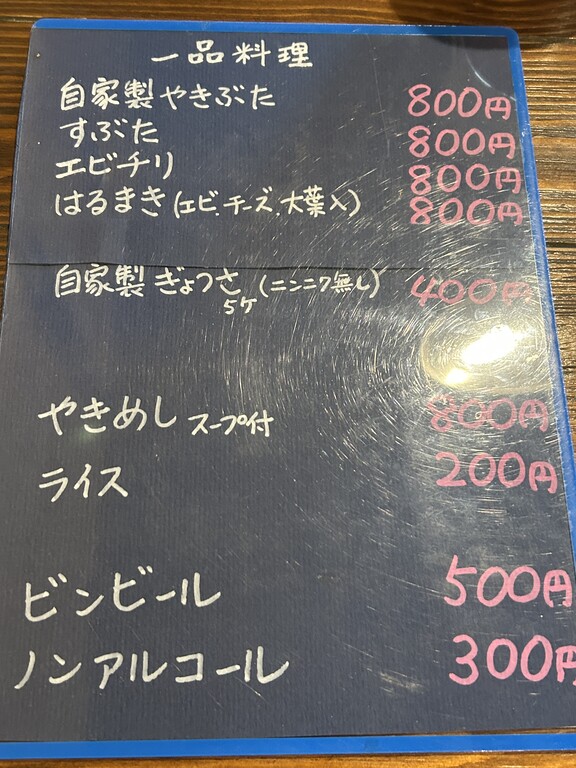 一品料理
自家製やきぶた 800円
すぶた 800円
エビチリ 800円
はるまき(エビ.チーズ.大葉入) 800円
自家製ぎょうさ(ニンニク無し) 400円
5ケ
やきめし スープ付 800円
ライス 200円
ビンビール 500円
ノンアルコール 300円